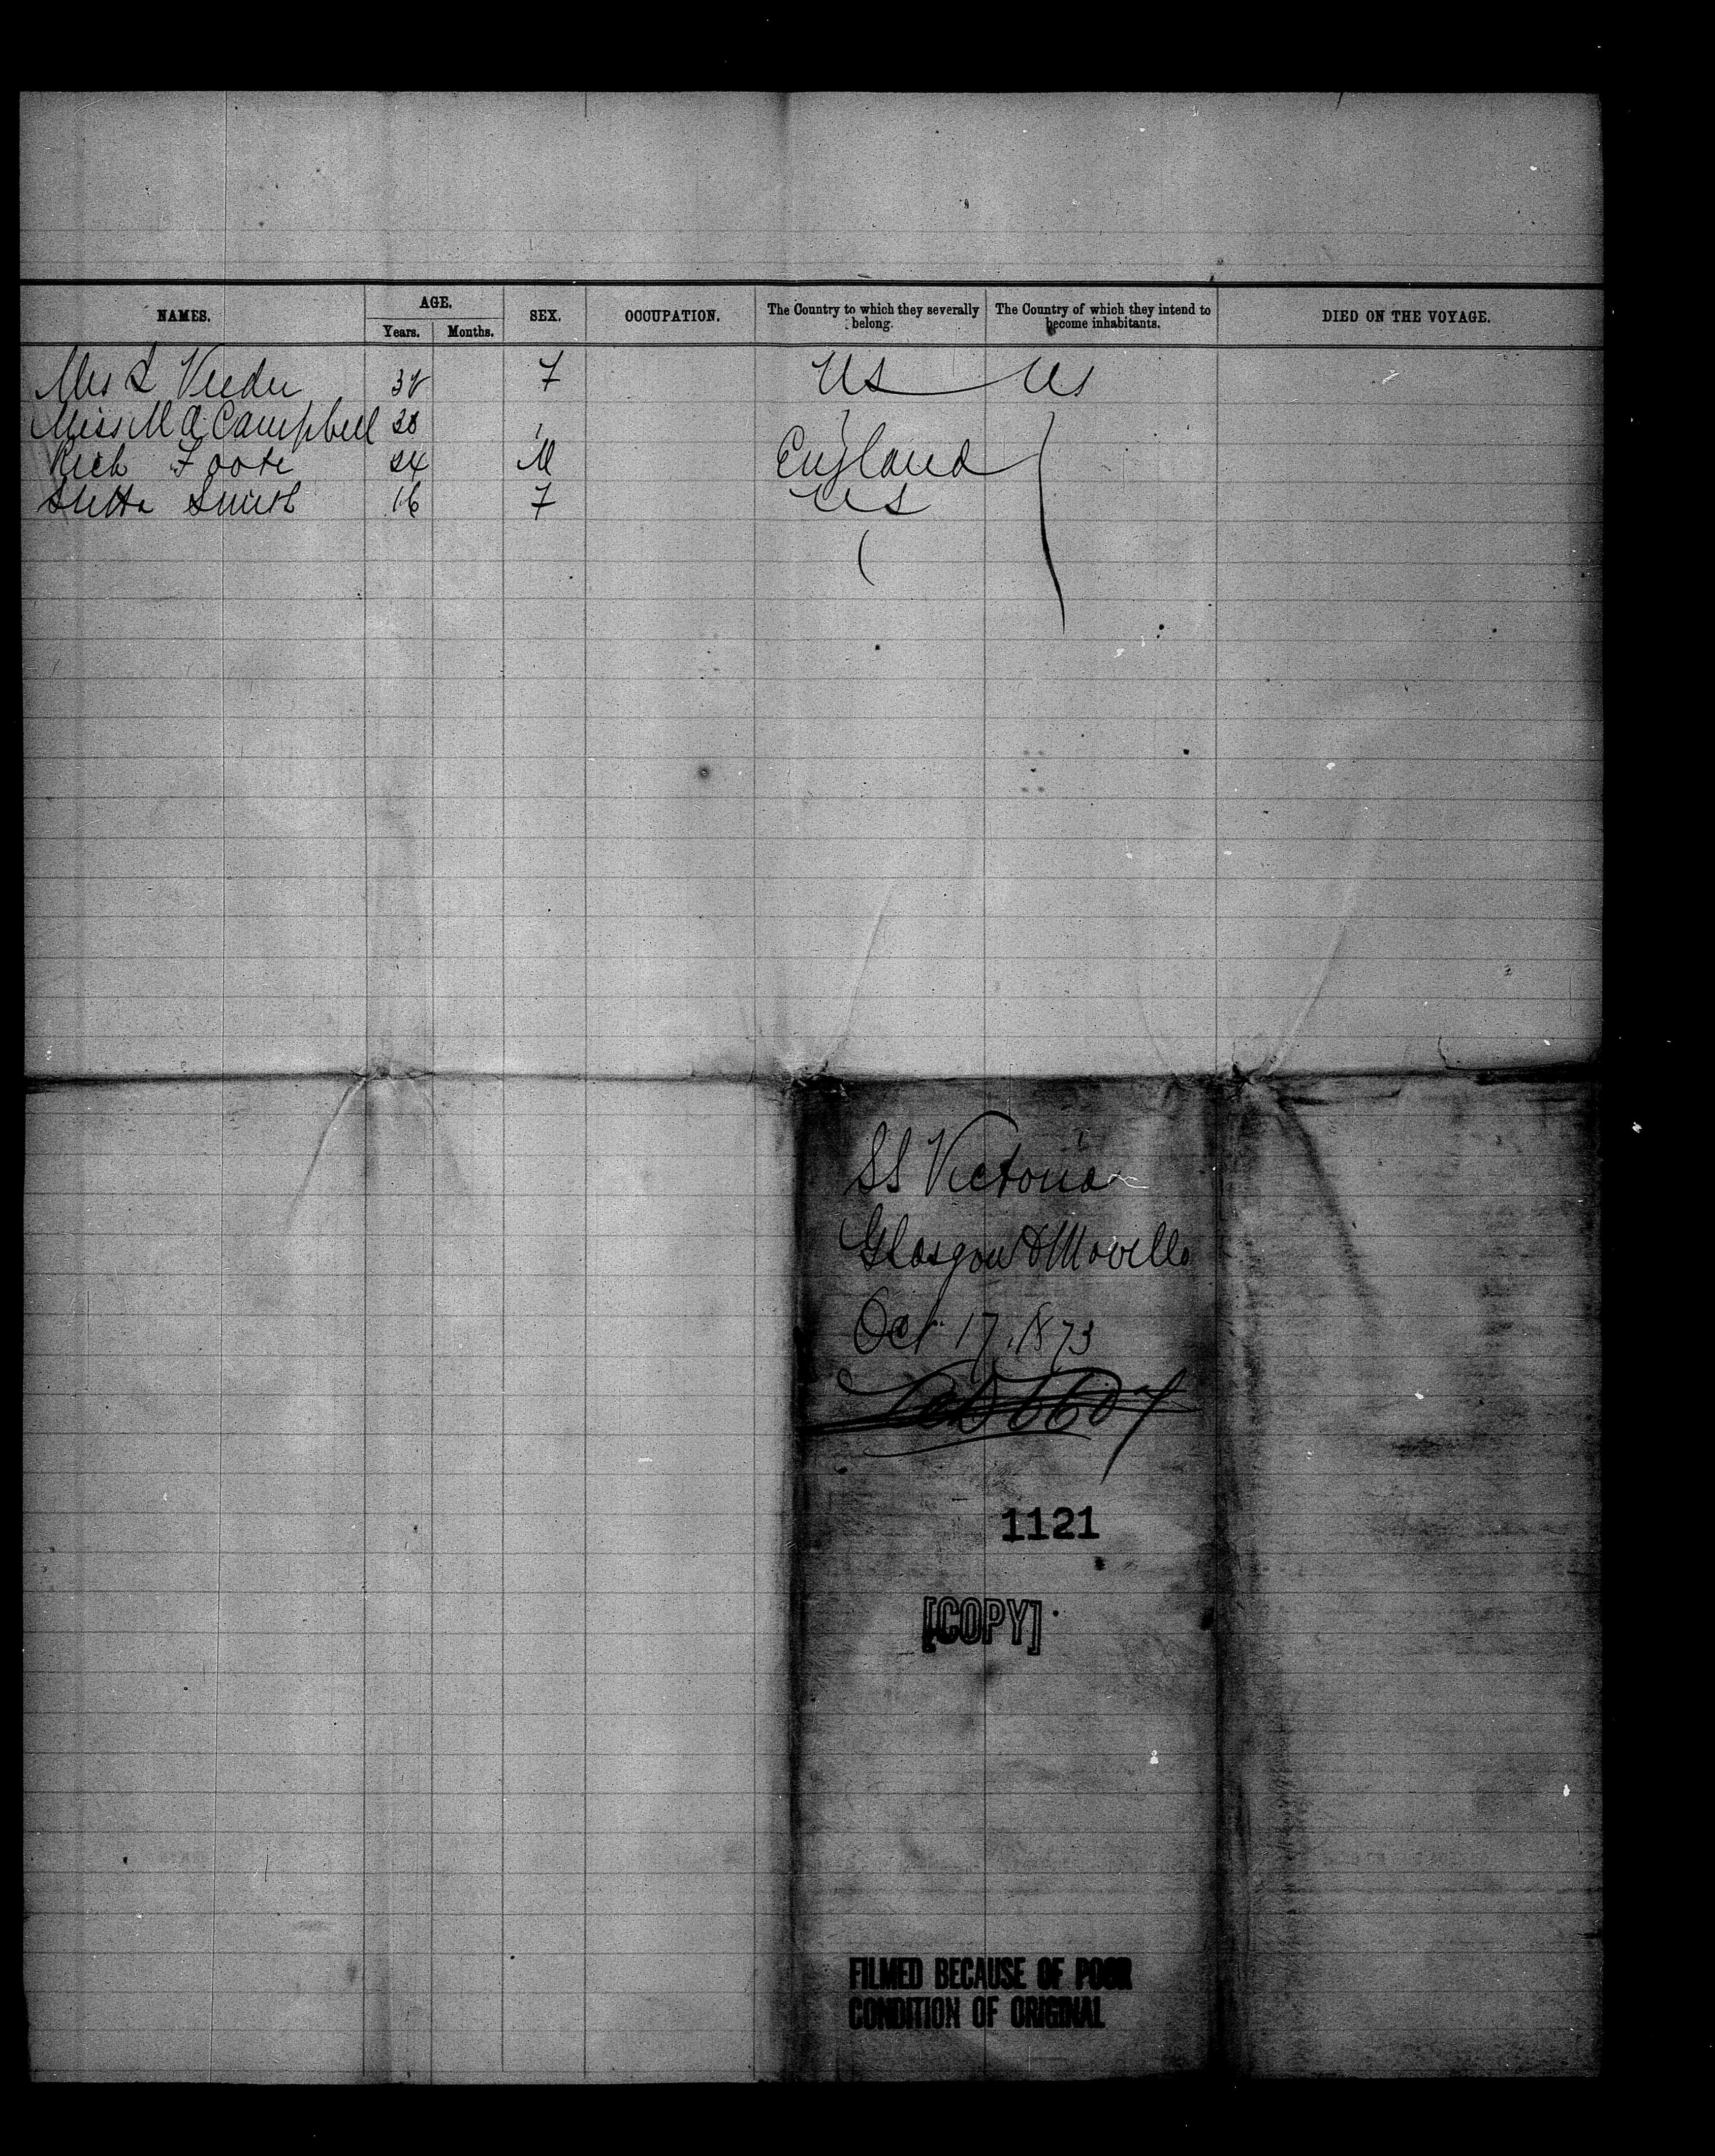 NAMES. AGE. SEX. OCCUPATION. The Country to which they severally belong. The Country of which they intend to become inhabitants. DIED ON THE VOYAGE.
Years. Months.
Mrs L Veeder 38 F US US
Miss M A Campbell 28
Rich Foote 24 M England
Smith 16 F US
SS Victoria
Glasgow & Moville
Oct 17. 1873
1121
[COPY]
FILMED BECAUSE OF POOR
CONDITION OF ORIGINAL